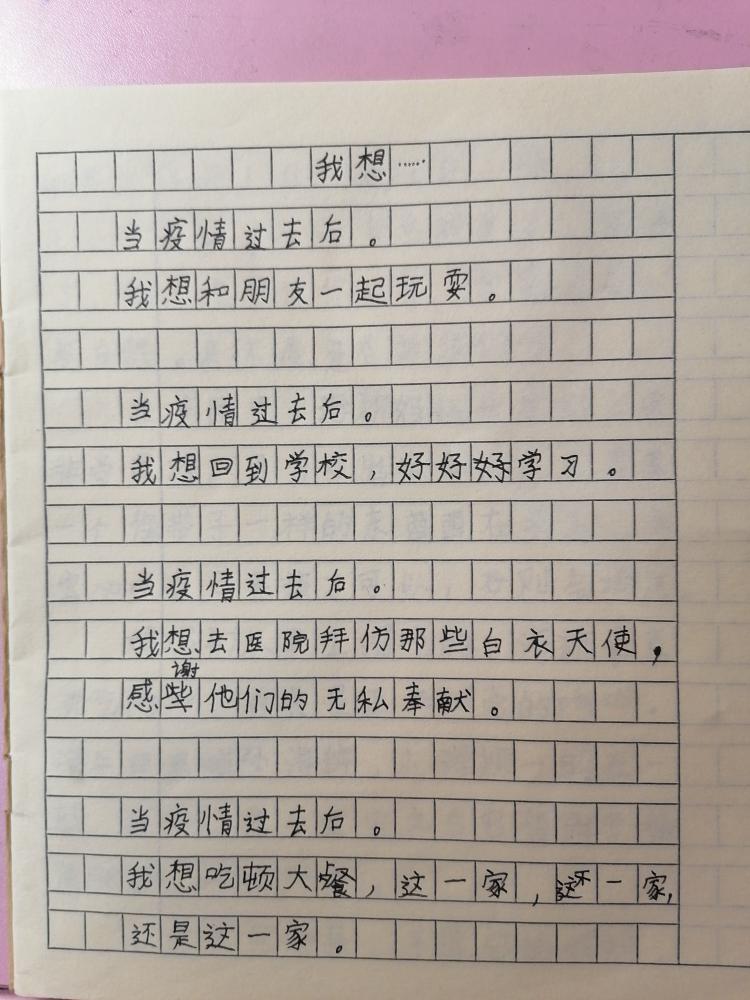 我想……
当疫情过去后。
我想和朋友一起玩耍。
当疫情过去后。
我想回到学校，好好好学习。
当疫情过去后。
我想去医院拜仿那些白衣天使，
感谢他们的无私奉献。
当疫情过去后。
我想吃顿大餐，这一家，还一家，
还是这一家。